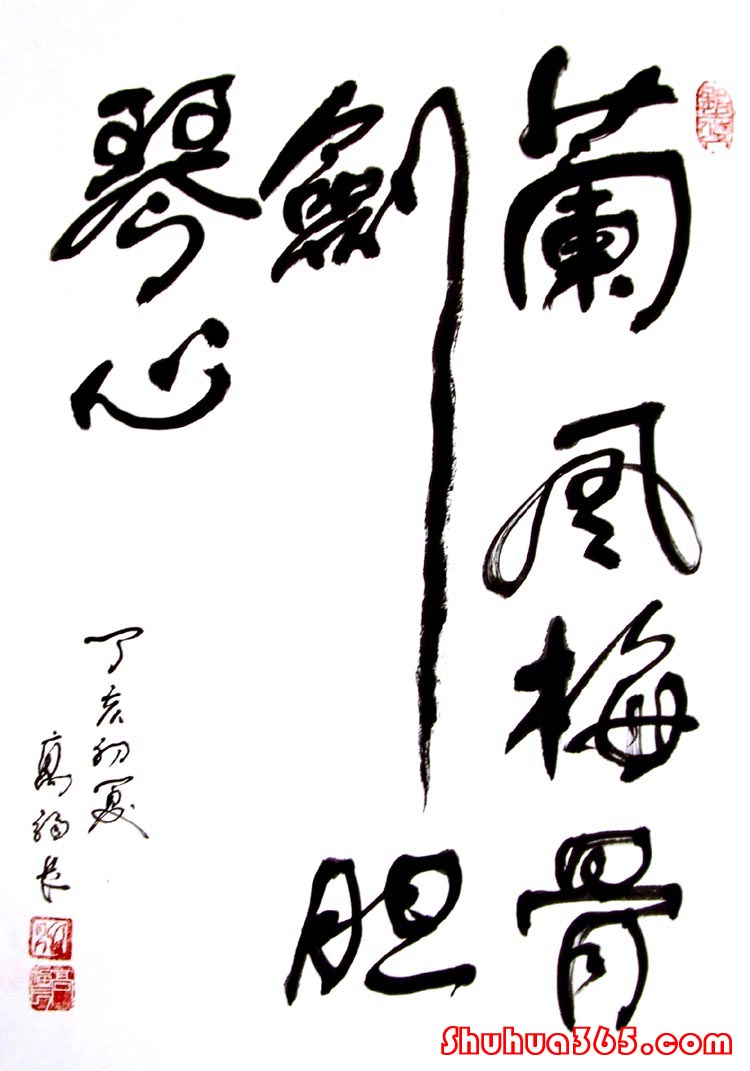 蘭風梅骨
劍胆
琴心
丁亥初夏
高福長
Shuhua365.com